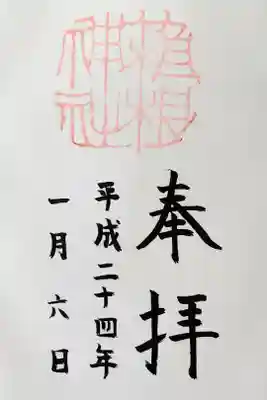 植槻
神社
奉拝
平成二十四年
一月六日